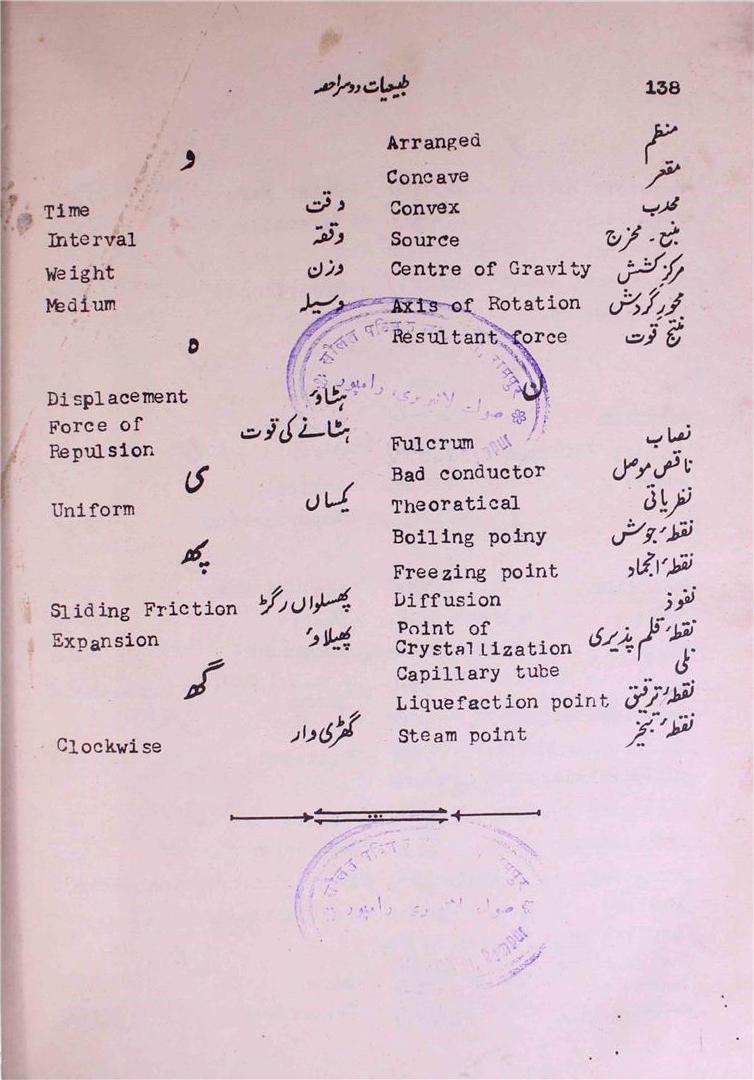 138 طبیعیات دوسرا حصہ
Arranged منظم
Concave مقعر
Convex محدب
Source منبع ۔ مخرج
Centre of Gravity مرکز کشش
Axis of Rotation محور گردش
Resultant force نتیج قوت
ن
Fulcrum نصاب
Bad conductor ناقص موصل
Theoratical نظریاتی
Boiling poiny نقطۂ جوش
Freezing point نقطۂ انجماد
Diffusion نفوذ
Point of
Crystallization نقطۂ قلم پذیری
Capillary tube نلی
Liquefaction point نقطۂ ترقیق
Steam point نقطۂ تبخیر
و
Time وقت
Interval وقفہ
Weight وزن
Medium وسیلہ
ہ
Displacement ہٹاؤ
Force of
Repulsion ہٹانے کی قوت
ی
Uniform یکساں
پھ
Sliding Friction پھسلواں رگڑ
Expansion پھیلاؤ
گھ
Clockwise گھڑی وار
صولت لائبریری، رامپور
सौलत पब्लिक रामपुर
صولت لائبریری رامپور